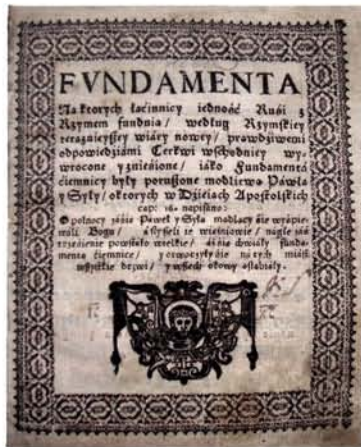 FVNDAMENTA
Na ktorych łacinnicy iedność Rusi z
Rzymem funduią / według Rzymskiey
teraznieyszey wiary nowey / prawdziwemi
odpowiedziami Cerkwi wschodniey wy-
wrocone y zniesione / iako Fundamenta
ciemnicy były poruszone modlitwą Pawła
y Syły / o ktorych w Dzieiach Apostolskich
cap: 16. napisano:
O połnocy zaśie Paweł y Syła modląc się wyspie-
wali Bogu / a słyszeli ie więźniowie / nagle
trzęśienie powstało wielkie / funda-
menta ciemnice / y otworzyły się natych miast
wszystkie drzwi / y wszech okowy osłabiały.